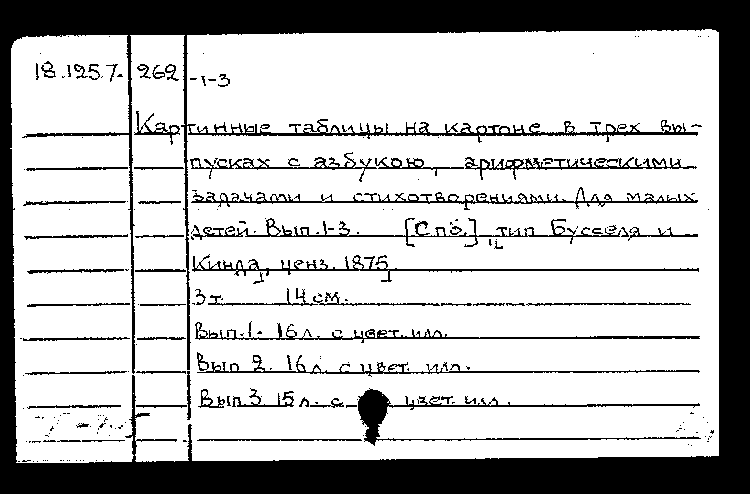 18.125.7. 262 -1-3
Картинные таблицы на картоне в трех вы-
пусках с азбукою, арифметическими
задачами и стихотворениями. Для малых
детей. Вып. 1-3. [Спб.], тип Бусселя и
Кинда, ценз. 1875
3 т. 14 см.
Вып. 1. 16 л. с цвет. илл.
Вып 2. 16 л. с цвет. илл.
Вып 3 15 л. с цвет. илл.